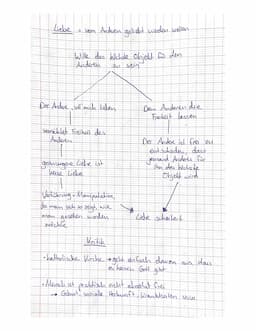 Liebe = vom Anderen geliebt werden wollen
Wille das höchste Objekt für den
Anderen zu sein
Der Andere soll mich lieben
Dem Anderen die
Freiheit lassen
vernichtet Freiheit des
Anderen
Der Andere ist frei zu
entscheiden, dass
jemand Anderes für
ihn das höchste
Objekt wird
gezwungene Liebe ist
keine Liebe
Verführung = Manipulation,
da man sich so zeigt, wie
man gesehen werden
möchte
Liebe scheitert
Kritik
• katholische Kirche → geht einfach davon aus, dass
es keinen Gott gibt
• Mensch ist praktisch nicht absolut frei
→ Geburt, soziale Herkunft, Krankheiten usw.